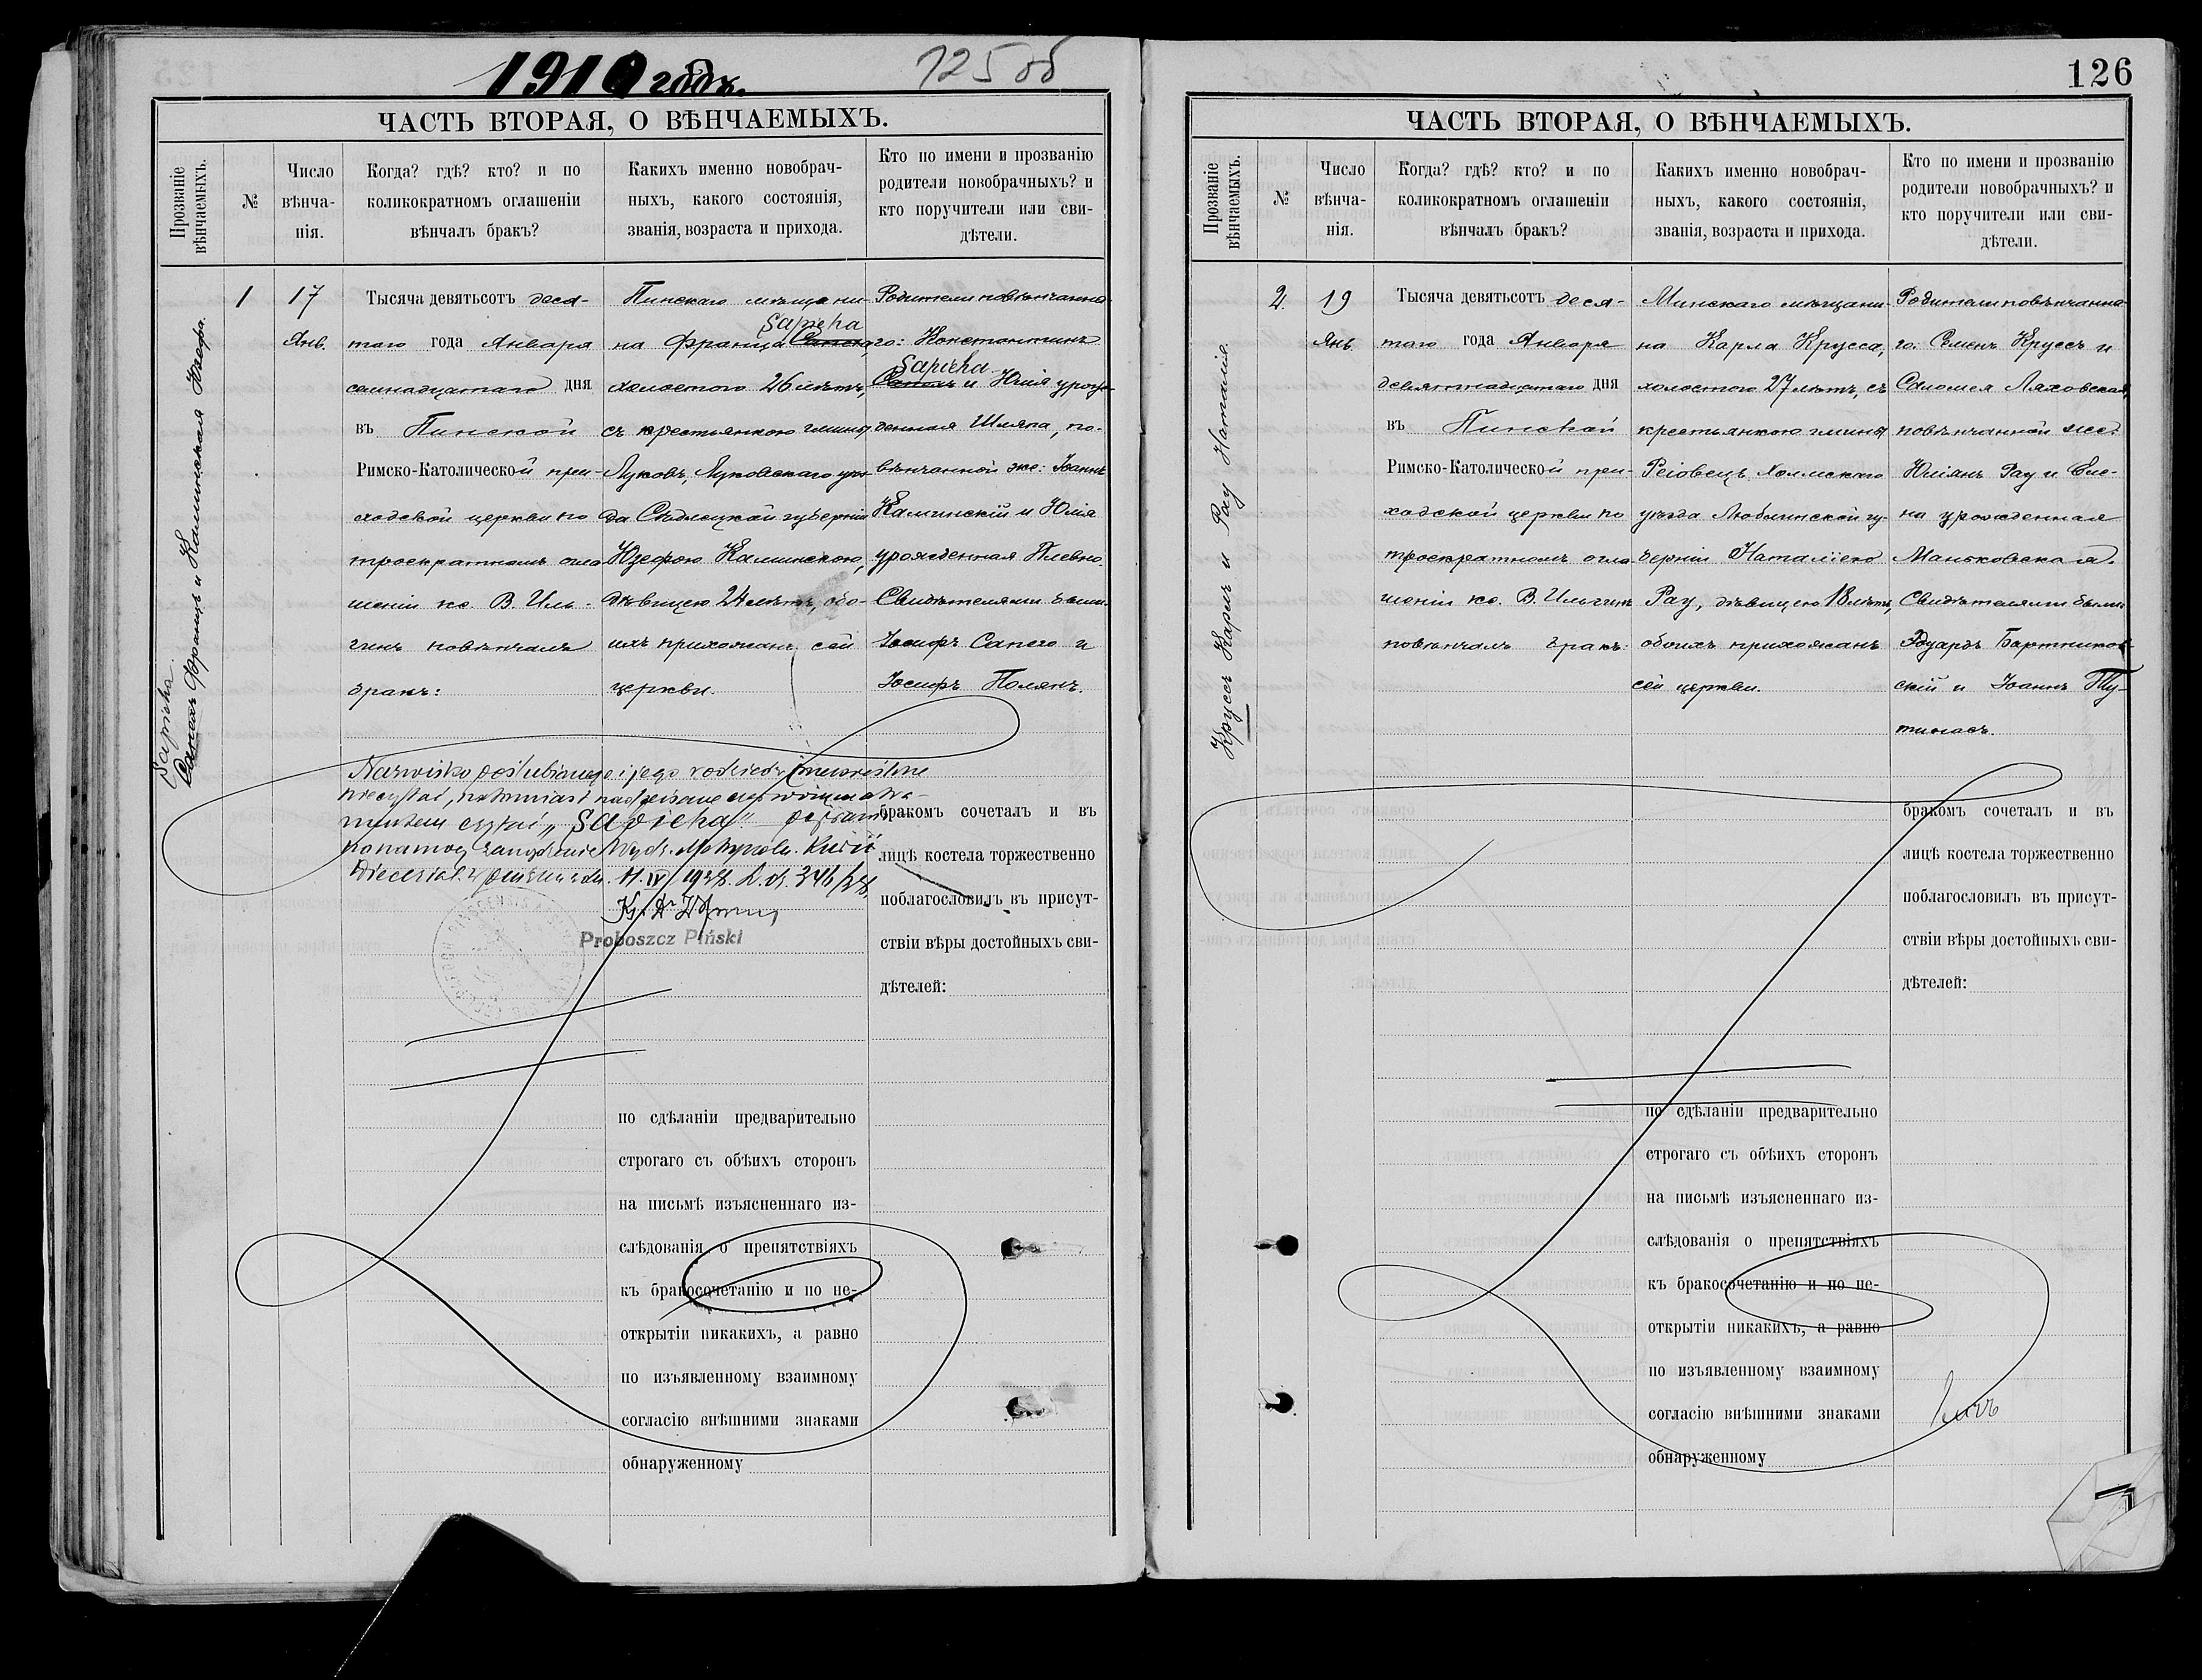 1910 годъ.
125 об
ЧАСТЬ ВТОРАЯ, О ВѢНЧАЕМЫХЪ.
Прозваніе
вѣнчаемыхъ.
№
Число
вѣнча-
нія.
Когда? гдѣ? кто? и по
коликократномъ оглашеніи
вѣнчалъ бракъ?
Какихъ именно новобрач-
ныхъ, какого состоянія,
званія, возраста и прихода.
Кто по имени и прозванію
родители новобрачныхъ? и
кто поручители или сви-
дѣтели.
Sapieha
Францъ и Калинская Юзефа.
1
17
Янв.
Тысяча девятьсотъ деся-
таго года Января
семнадцатаго дня
въ Пинской
Римско-Католической при-
ходской церкви по
троекратномъ огла-
шеніи кс. В. Иль-
гинъ повѣнчалъ
бракъ:
Пинскаго мѣщани-
Sapieha
на Франца
холостого 26 лѣтъ,
съ крестьянкою гмины
Луковъ, Луковскаго уѣз-
да Сѣдлецкой губерніи
Юзефою Калинскою,
дѣвицею 24 лѣтъ, обо-
ихъ прихожанъ сей
церкви.
Родители повѣнчанна-
го: Константинъ
Sapieha
и Юлія урож-
денная Шляпа, по-
вѣнчанной же: Іоаннъ
Калинскій и Юлія
урожденная Плевко.
Свидѣтелями были
Іосифъ Сапего и
Іосифъ Полянъ.
Nazwisko poślubionego i jego rodziców
nie czytać, natomiast nadpisane
czytać "Sapieha"
1928. L. dz. 346/28
Proboszcz Piński
бракомъ сочеталъ и въ
лицѣ костела торжественно
поблагословилъ въ присут-
ствіи вѣры достойныхъ сви-
дѣтелей:
по сдѣланіи предварительно
строгаго съ обѣихъ сторонъ
на письмѣ изъясненнаго из-
слѣдованія о препятствіяхъ
къ бракосочетанію и по не-
открытіи никакихъ, а равно
по изъявленному взаимному
согласію внѣшними знаками
обнаруженному
126
ЧАСТЬ ВТОРАЯ, О ВѢНЧАЕМЫХЪ.
Прозваніе
вѣнчаемыхъ.
№
Число
вѣнча-
нія.
Когда? гдѣ? кто? и по
коликократномъ оглашеніи
вѣнчалъ бракъ?
Какихъ именно новобрач-
ныхъ, какого состоянія,
званія, возраста и прихода.
Кто по имени и прозванію
родители новобрачныхъ? и
кто поручители или сви-
дѣтели.
Круссъ Карлъ и Рау Наталія.
2.
19
Янв.
Тысяча девятьсотъ деся-
таго года Января
девятнадцатаго дня
въ Пинской
Римско-Католической при-
ходской церкви по
троекратномъ огла-
шеніи кс. В. Ильгинъ
повѣнчалъ бракъ:
Минскаго мѣщани-
на Карла Крусса,
холостого 27 лѣтъ, съ
крестьянкою гмины
Реіовецъ Холмскаго
уѣзда Люблинской гу-
берніи Наталіею
Рау, дѣвицею 18 лѣтъ,
обоихъ прихожанъ
сей церкви.
Родители повѣнчанна-
го: Семенъ Круссъ и
Саломея Ляховская,
повѣнчанной же:
Юліянъ Рау и Еле-
на урожденная
Маньковская.
Свидѣтелями были
Эдуардъ Бартников-
скій и Іоаннъ Пу-
тинасъ.
бракомъ сочеталъ и въ
лицѣ костела торжественно
поблагословилъ въ присут-
ствіи вѣры достойныхъ сви-
дѣтелей:
по сдѣланіи предварительно
строгаго съ обѣихъ сторонъ
на письмѣ изъясненнаго из-
слѣдованія о препятствіяхъ
къ бракосочетанію и по не-
открытіи никакихъ, а равно
по изъявленному взаимному
согласію внѣшними знаками
обнаруженному